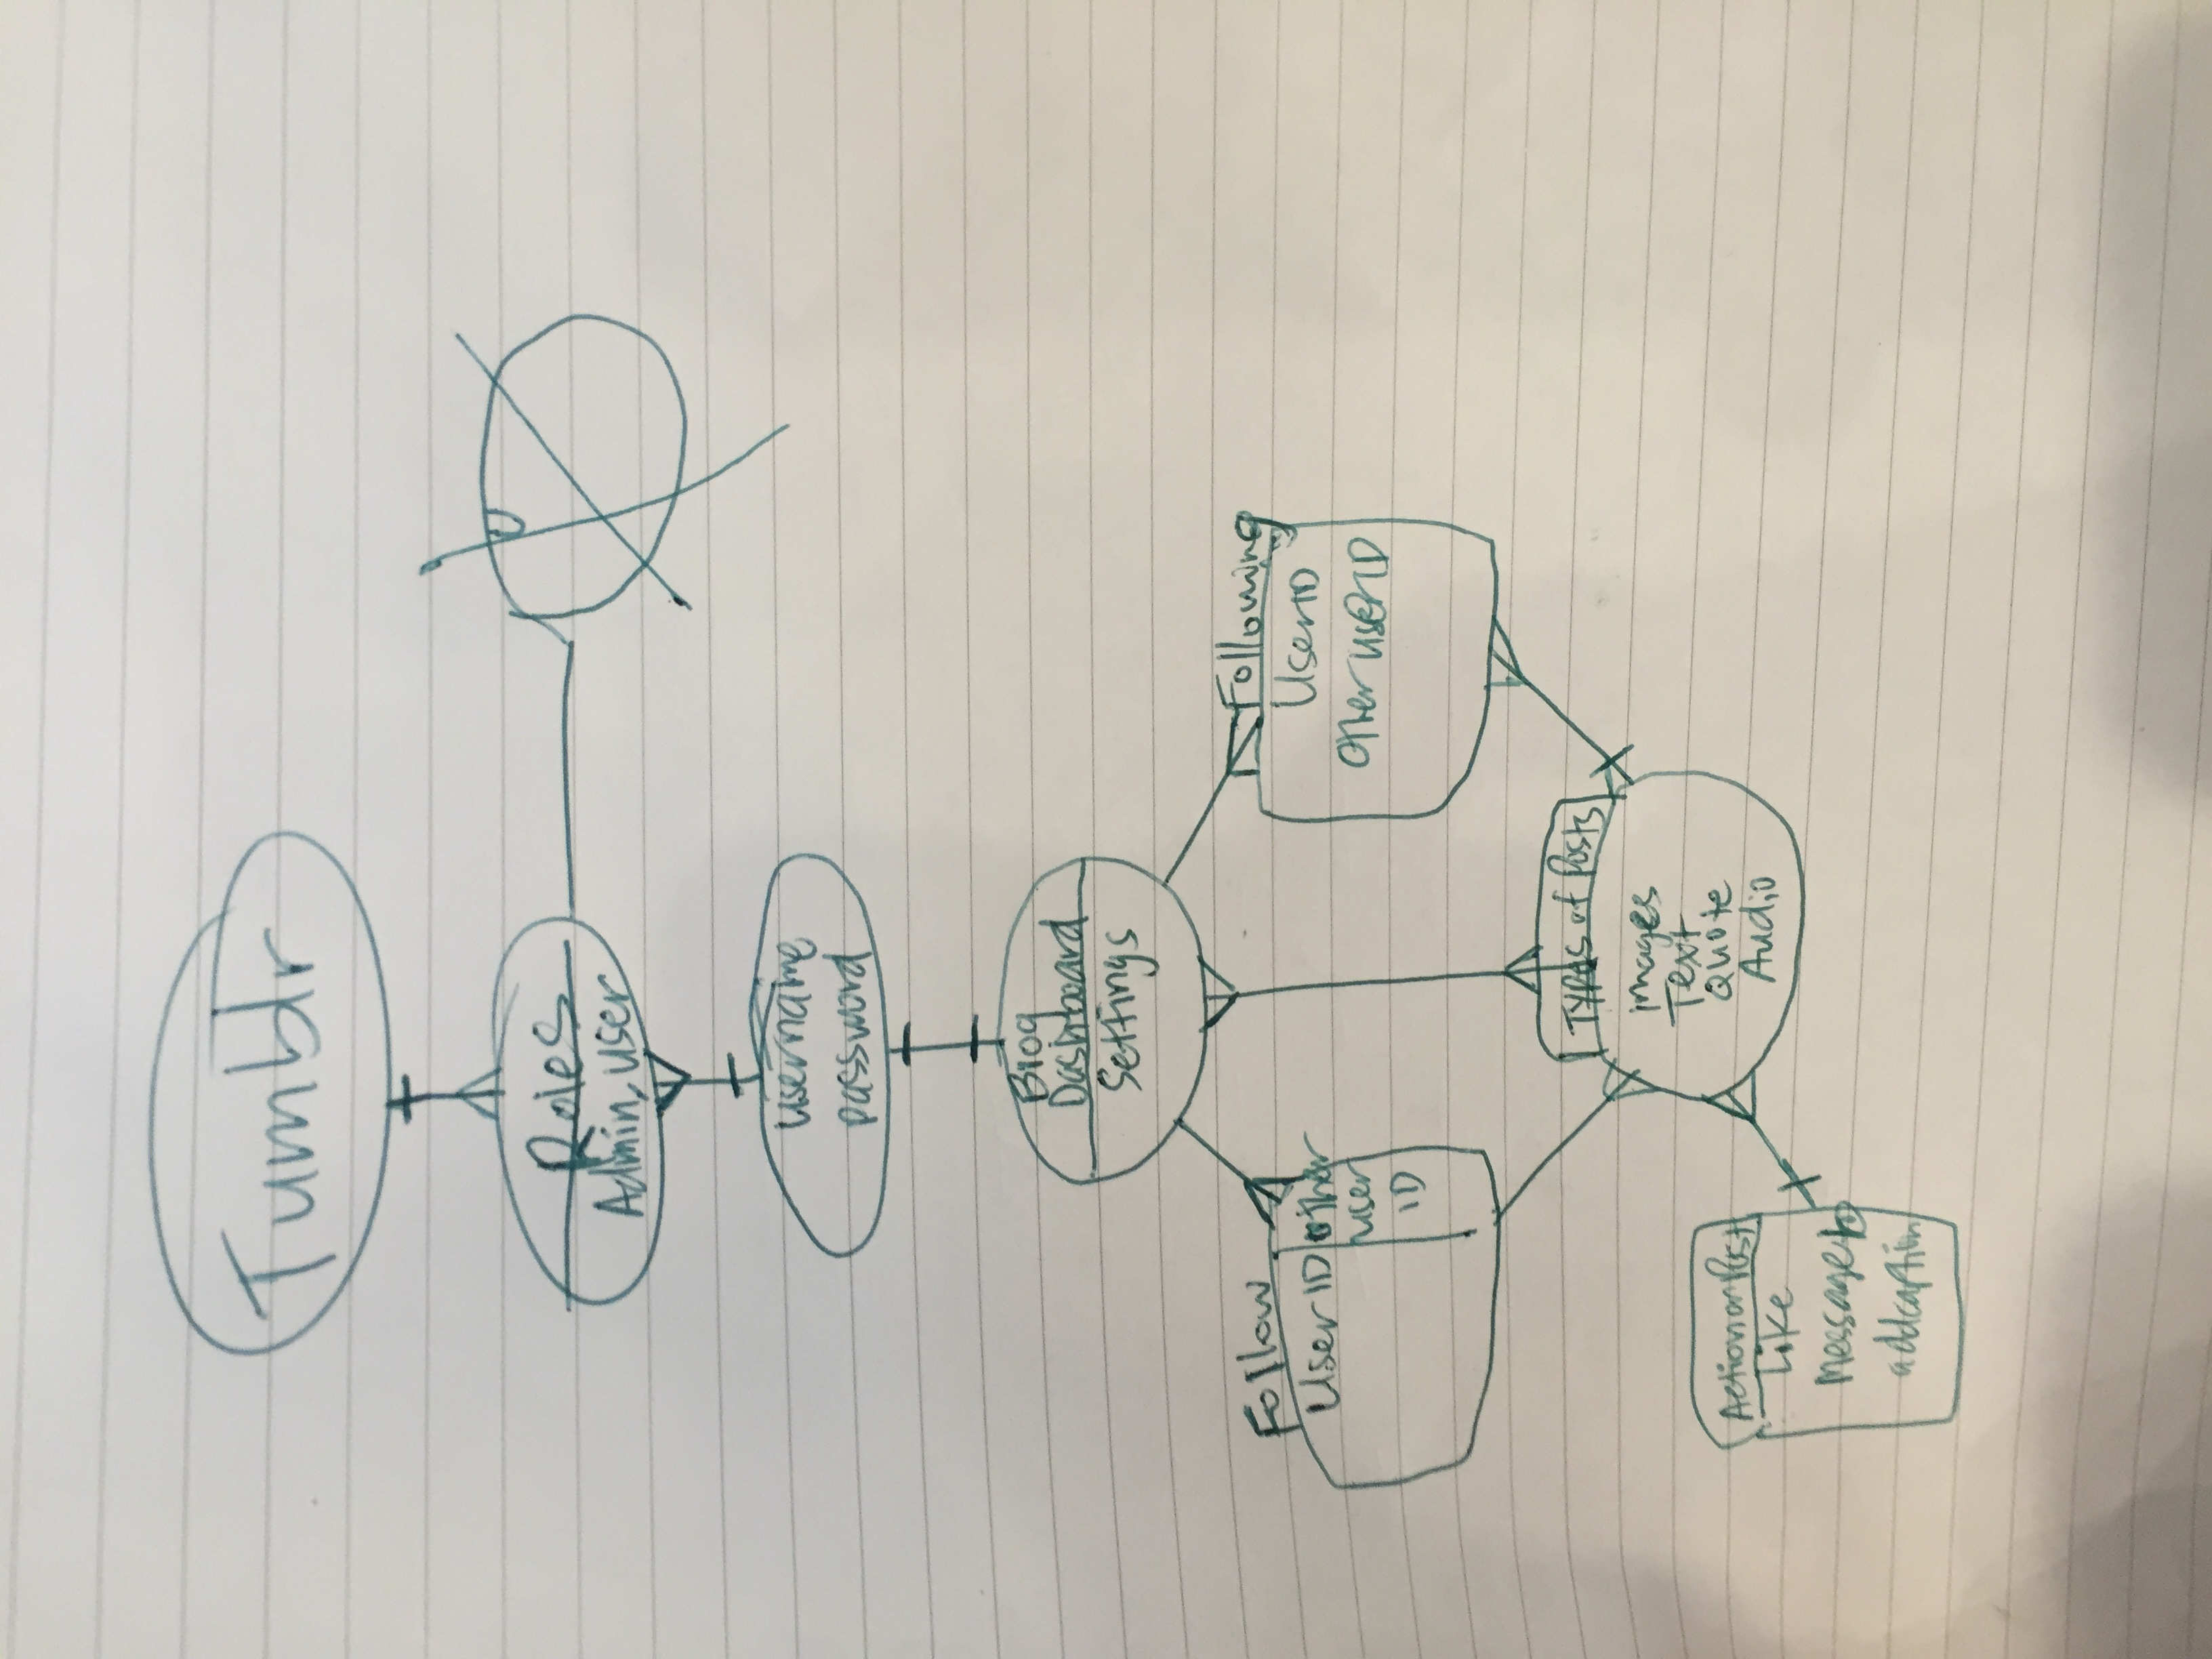 Tumblr
Roles
Admin, user
U
username
password
Blog
Dashboard
Settings
Follow
User ID
other
user
ID
Following
UserID
Other userID
Types of Posts
images
Text
Quote
Audio
Action on Post
Like
Message
addcaption